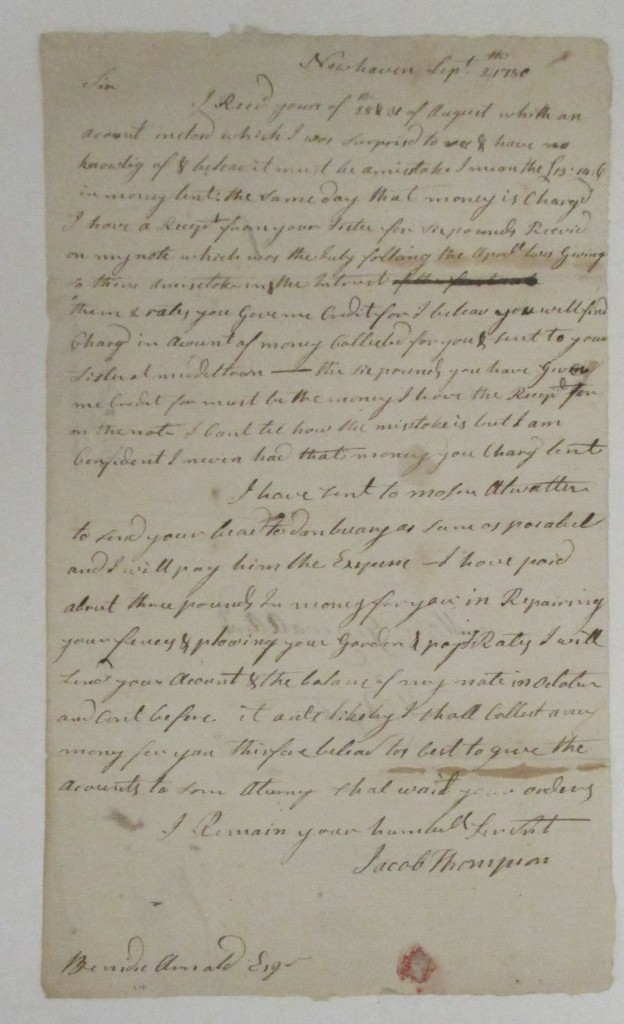 Newhaven Sept. 2th 1780
Sir
I Recd yours of 28th & 31 of August whith an
acount inclosd which I was surprisd to see & have no
knowlig of & beleav it must be a mistake I mean the £13:14:6
in money lent: the same day that money is Chargd
I have a Recept from your Sister for six pounds Receivd
on my note which was the July folloing the Aprd was Giving
a mistake in the Intrest of the
them & rates you Gave me Credit for I beleav you will find
Chargd in acount of money Collected for you & sent to your
Sister at middeltown — the six pounds you have Given
me Credit for must be the money I have the Recept for
on the note I Cant tel how the mistake is but I am
Confident I never had that money you Chargd lent
I have sent to moses Atwatter
to send your to danbeary as sune as posabel
and I will pay him the Expense — I have paid
about three pounds In money for you in Repairing
your fences & plowing your Garden & paying Rates I will
send your Acount & the balance of my note in October
and Cant before it ant likely I shall Collect any
money for you thirfore beleav tis best to give the
acounts to som aturny shal wait your orders
I Remain your humbel Servnt
Jacob Thompson
Benidic Arnald Esqr